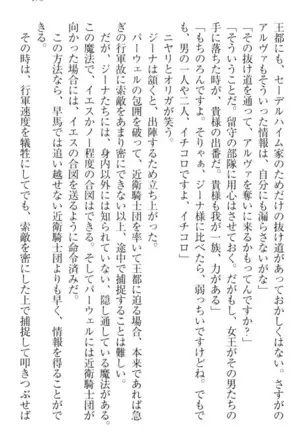 王都にも、セーデルハイム家のためだけの抜け道があっておかしくはない。さすがの
アルヴァもそういった情報は、自分にも漏らさないがな」
「その抜け道を通って、アルヴァを奪いに来るかもってんですか？」
「そういうことだ。留守の部隊に用心はさせておく。だがもし、女王がその男たちの
手に落ちた時が、貴様の出番だ。貴様も我が一族、力がある」
「もちのろんですよ。そりゃぁ、ジーナ様に比べたら、弱っちいですけどね。でもで
も、男の一人や二人、イチコロ、イチコロ」
ニヤリとオリガが笑う。
ジーナは頷くと、出陣するため立ち上がった。
パーウェルの包囲を破って、近衛騎士団を率い王都に迫る場合、本来であれば急
ぎの行軍故に索敵をあまり密にできない以上、途中で捕捉することは難しい。
だが、ジーナたちには、身内以外には知られていない、隠し通している魔法がある。
この魔法で、イエスかノー程度の合図はできる。そしてパーウェルには近衛騎士団が
向かった場合には、イエスの合図を送るように命令済みだ。
この方法なら、早馬では追い越せない近衛騎士団よりも早く、情報を得ることがで
きる。
その時は、行軍速度を犠牲にしてでも、索敵を密にした上で捕捉して叩きつぶせば